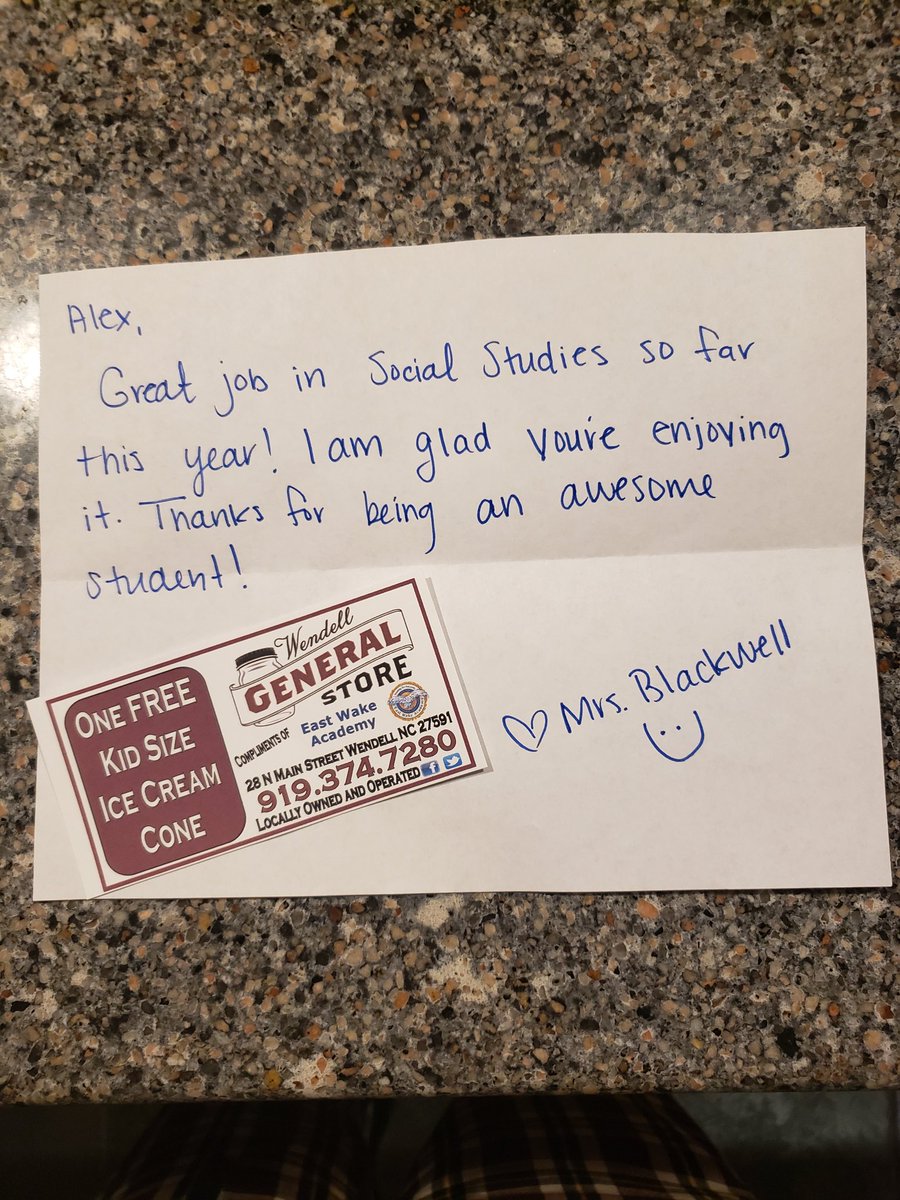 Alex,
Great job in Social Studies so far
this year! I am glad you're enjoying
it. Thanks for being an awesome
student!
♡ Mrs. Blackwell
ONE FREE
KID SIZE
ICE CREAM
CONE
Wendell
GENERAL
STORE
COMPLIMENTS OF
East Wake
Academy
28 N MAIN STREET WENDELL NC 27591
919.374.7280
LOCALLY OWNED AND OPERATED